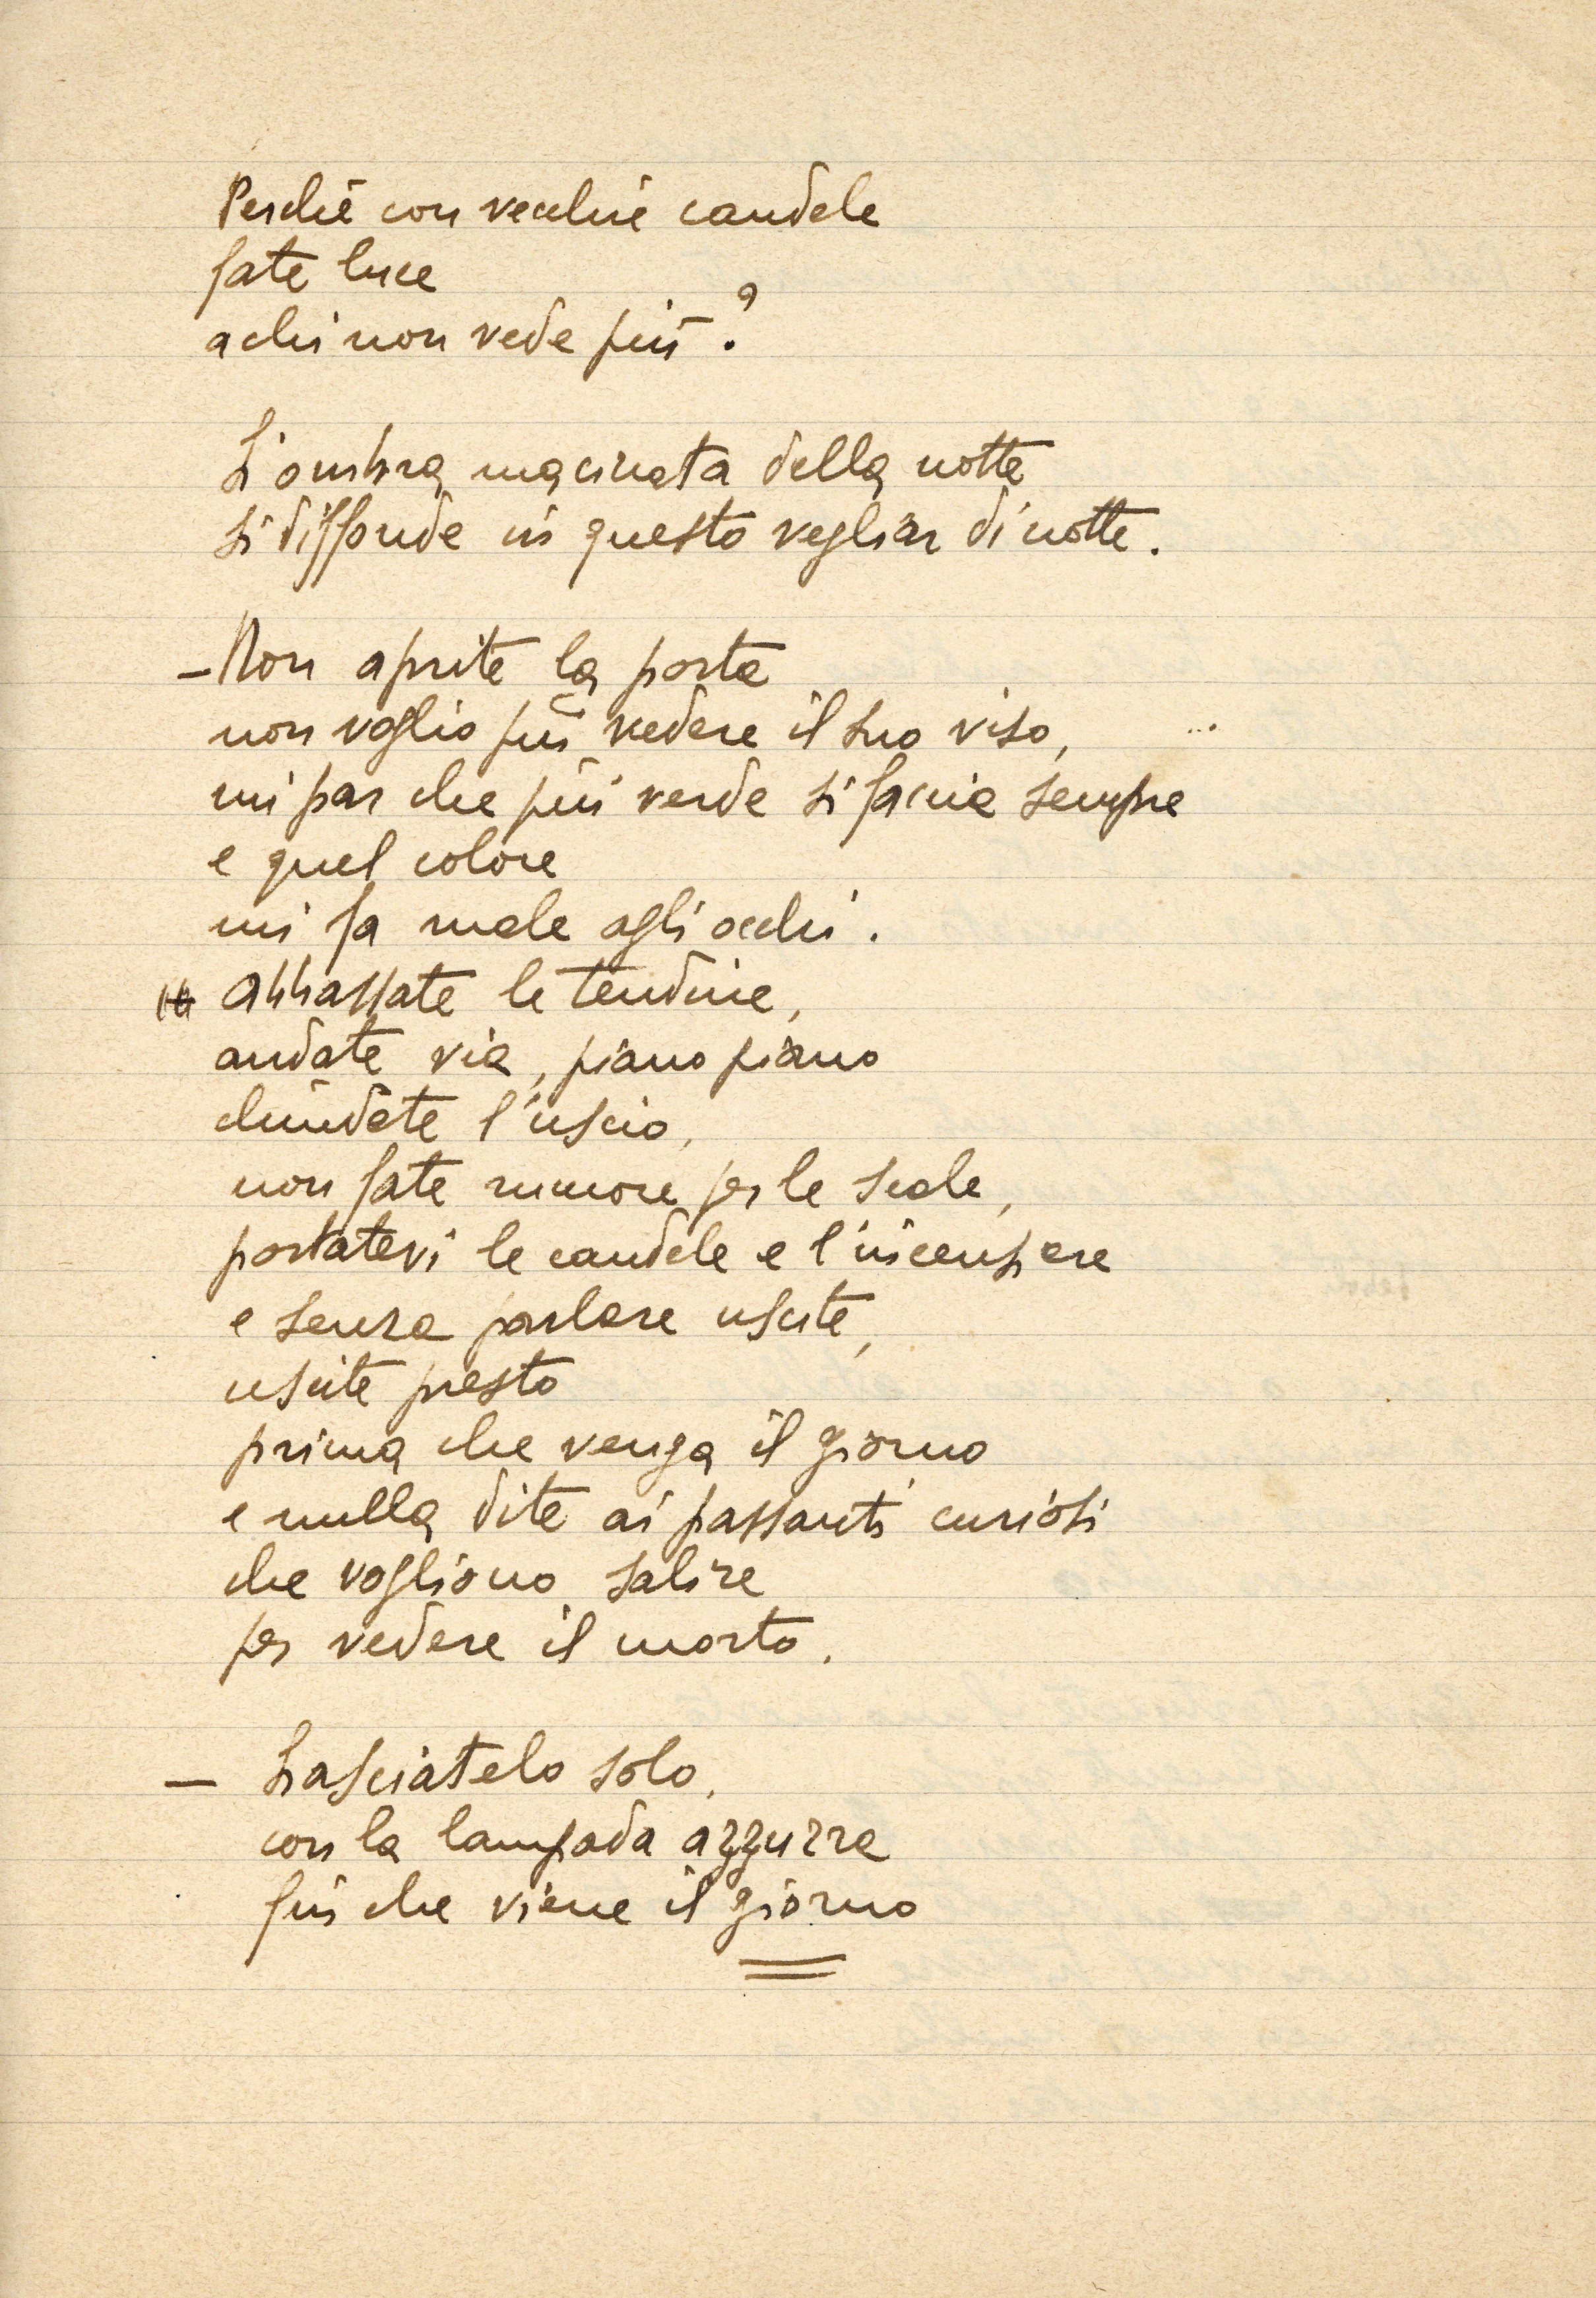 Perchè con vecchie candele
fate luce
a chi non vede più?
L'ombra macinata della notte
si diffonde in questo vegliar di notte.
– Non aprite la porta
non voglio più vedere il suo viso,
mi par che più verde si faccia sempre
e quel colore
mi fa male agli occhi.
Abbassate le tendine,
andate via, piano piano
chiudete l'uscio,
non fate rumore per le scale,
portatevi le candele e l'incensiere
e senza parlare uscite,
uscite presto
prima che venga il giorno
e nulla dite ai passanti curiosi
che vogliono salire
per vedere il morto.
– Lasciatelo solo,
con la lampada azzurra
fin che viene il giorno